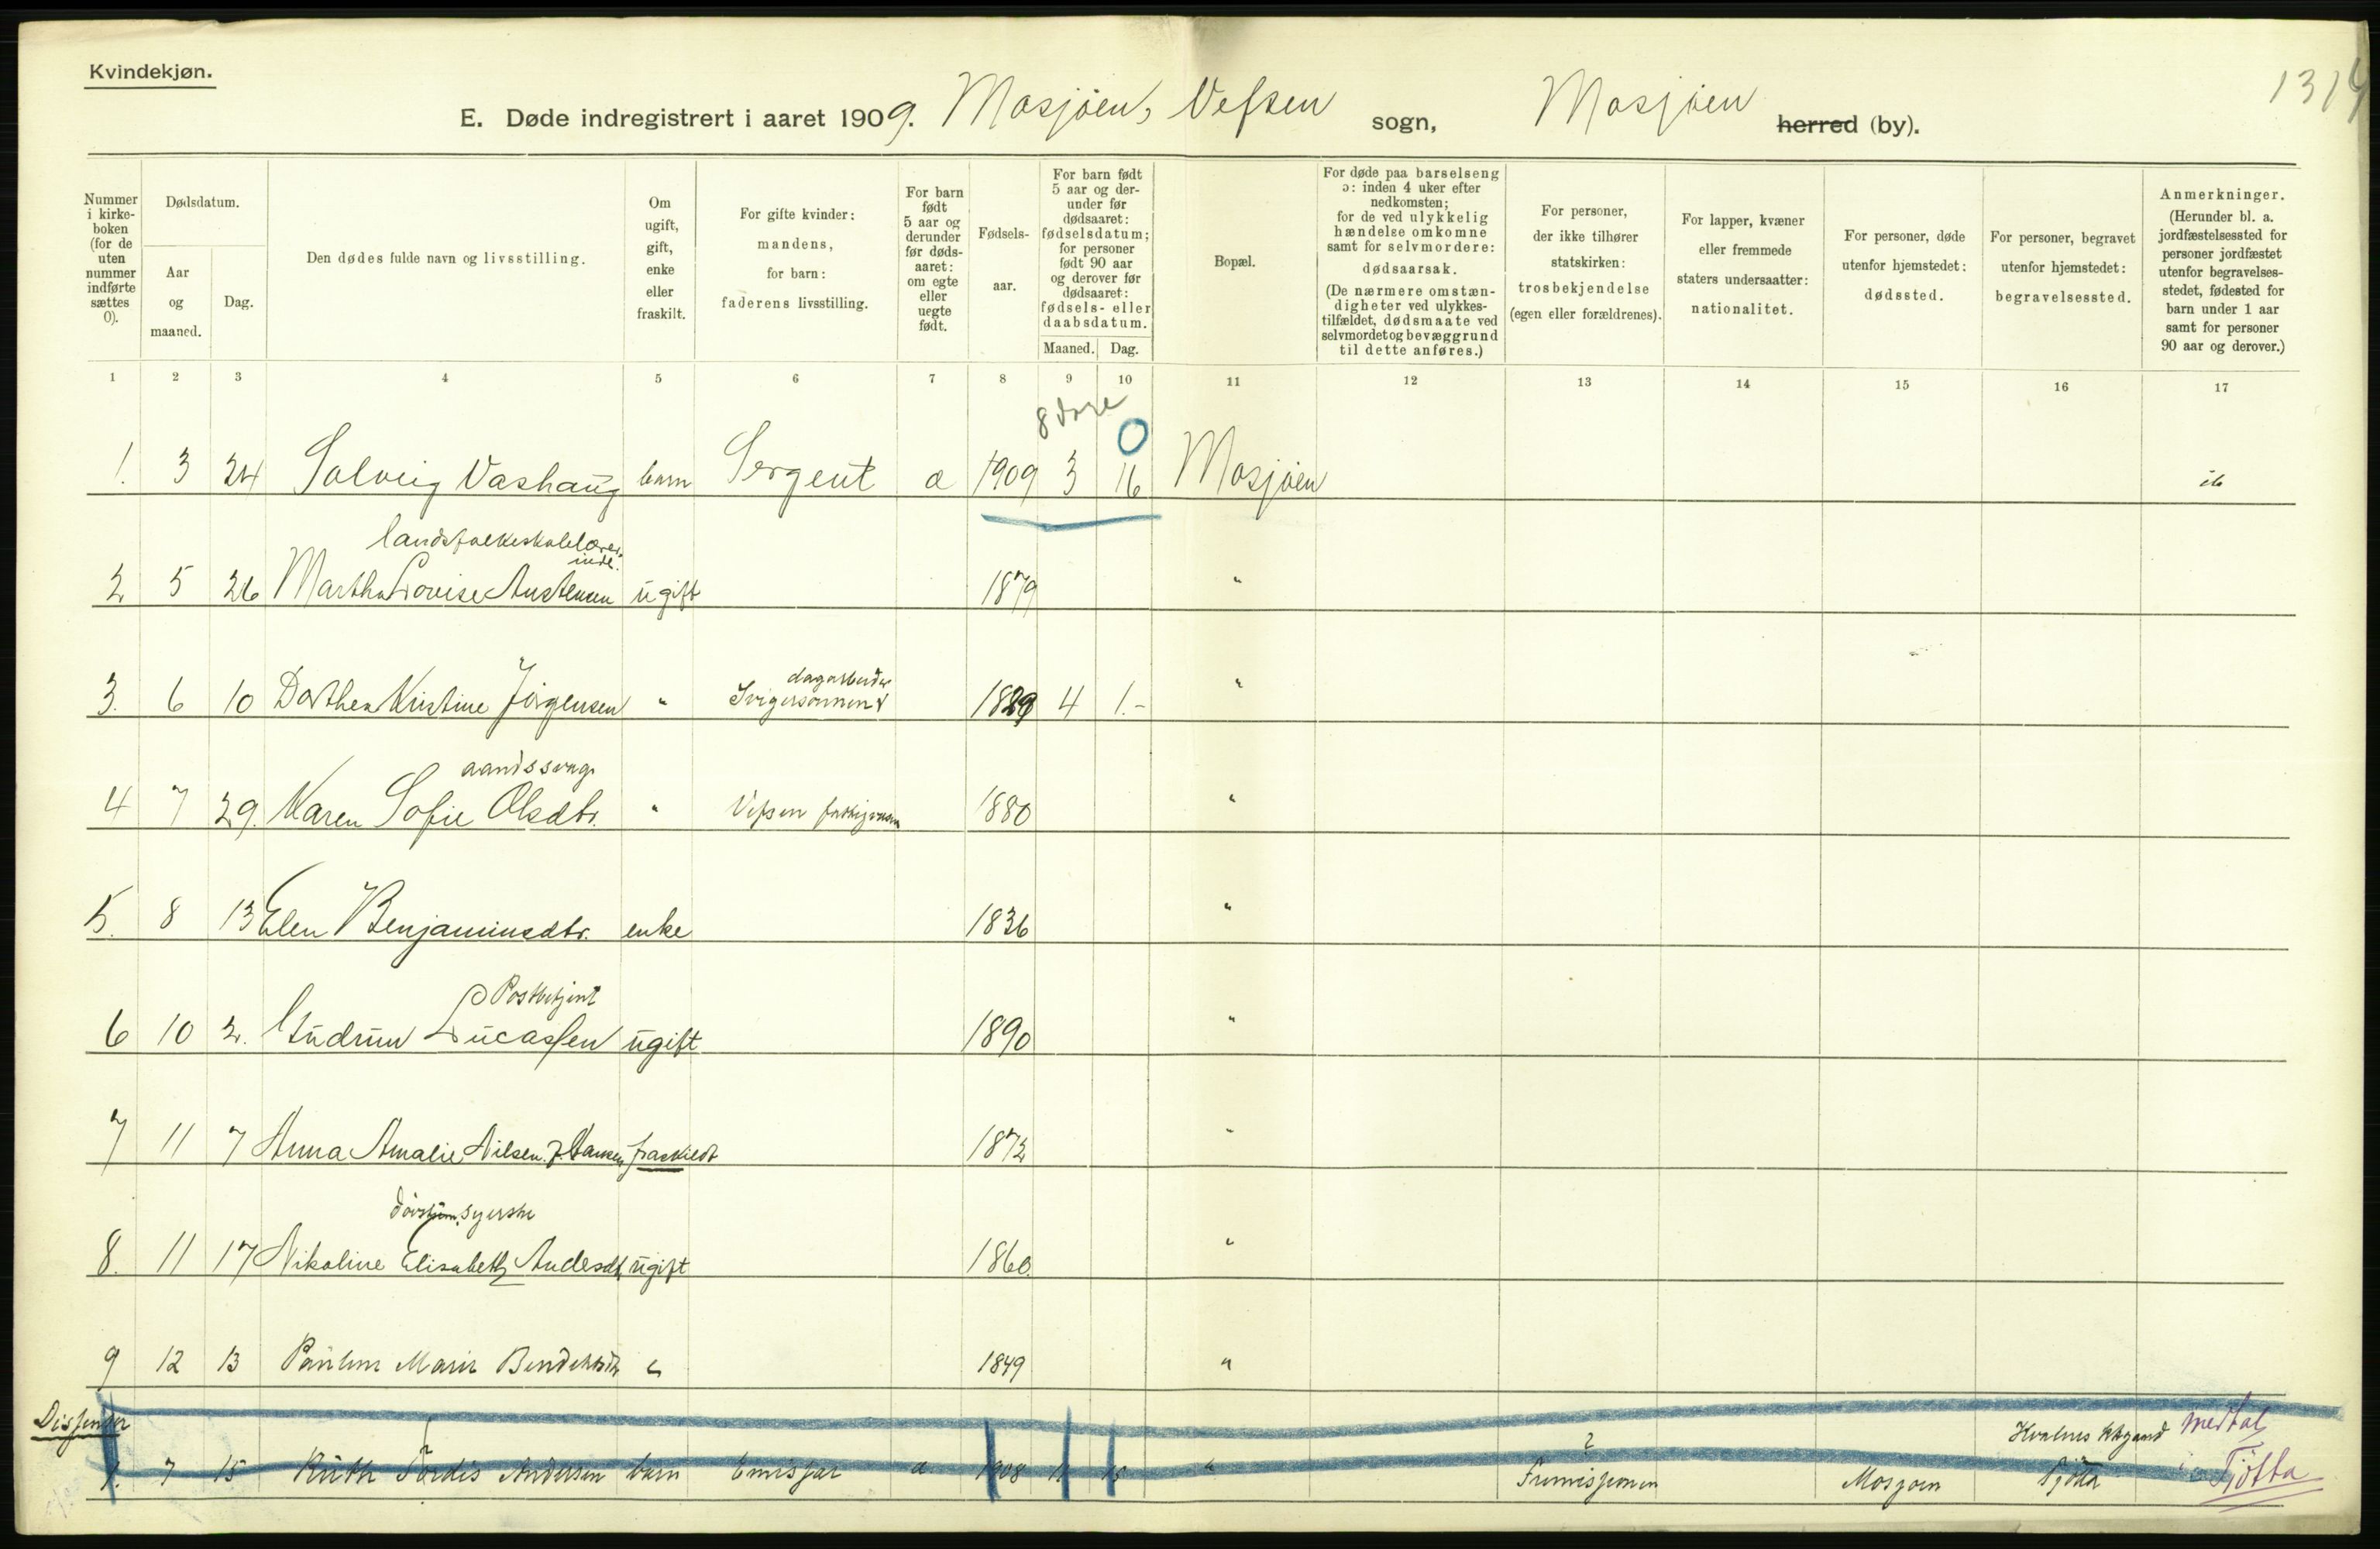 Kvindekjøn.
1314
E. Døde indregistrert i aaret 1909. Mosjöen, Vefsen sogn, Mosjöen herred (by).
Nummer i kirke-boken (for de uten nummer indførte sættes 0).
Dødsdatum.
Aar og maaned.
Dag.
Den dødes fulde navn og livsstilling.
Om ugift, gift, enke eller fraskilt.
For gifte kvinder: mandens, for barn: faderens livsstilling.
For barn født 5 aar og derunder før døds-aaret: om egte eller uegte født.
Fødsels-aar.
For barn født 5 aar og der-under før dødsaaret: fødselsdatum; for personer født 90 aar og derover før dødsaaret: fødsels- eller daabsdatum.
Maaned.
Dag.
Bopæl.
For døde paa barselseng ɔ: inden 4 uker efter nedkomsten; for de ved ulykkelig hændelse omkomne samt for selvmordere: dødsaarsak. (De nærmere omstæn-digheter ved ulykkes-tilfældet, dødsmaate ved selvmordet og bevæggrund til dette anføres.)
For personer, der ikke tilhører statskirken: trosbekjendelse (egen eller forældrenes).
For lapper, kvæner eller fremmede staters undersaatter: nationalitet.
For personer, døde utenfor hjemstedet: dødssted.
For personer, begravet utenfor hjemstedet: begravelsessted.
Anmerkninger. (Herunder bl. a. jordfæstelsessted for personer jordfæstet utenfor begravelses-stedet, fødested for barn under 1 aar samt for personer 90 aar og derover.)
1 2 3 4 5 6 7 8 9 10 11 12 13 14 15 16 17
8 dage
0
1. 3 24 Solveig Vashaug barn Sergent æ 1909 3 16 Mosjöen ib
landsfolkeskolelærer-
inde.
2 5 26 Martha Lovise Austennen ugift 1879 "
dagarbeider
3. 6 10 Dorthea Kristine Jörgensen " Svigersönnen 1829 4 1.- "
aandssvag
4 7 29. Karen Sofie Olsdtr. " Vefsen fattigvæsen 1880 "
5. 8 13 Elen Benjaminsdtr. enke 1836 "
Postbetjent
6 10 2. Gudrun Lucassen ugift 1890 "
7 11 7 Anna Amalie Nilsen f. Hansen fraskildt 1872 "
dövstum, syerske
8. 11 17 Nikoline Elisabeth Andersdt. ugift 1860. "
9 12 13 Pauline Marie Bendiktsdtr " 1849 "
Dissenter
? Kvalnes kkgaard medtal
1. 7 15 Ruth Tordis Andersen barn Emissær æ 1908 11 15 " Frimissjonen Mosjoen Tjötta i Tjötta